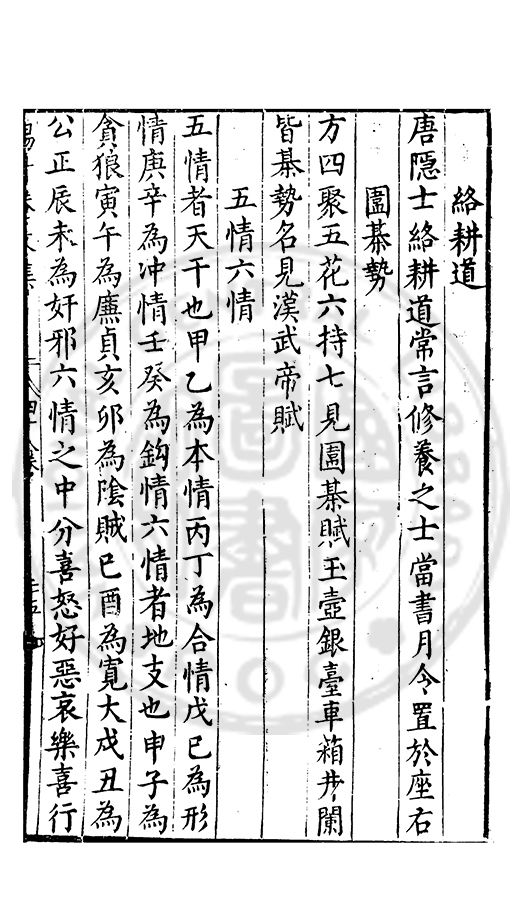 絡耕道
唐隠士絡耕道常言修養之士當書月令置於座右
圍棊勢
方四聚五花六持七見圍棊賦玉壺銀臺車箱井闌
皆棊勢名見漢武帝賦
五情六情
五情者天干也甲乙為本情丙丁為合情戊已為形
情庚辛為冲情壬癸為鈎情六情者地支也申子為
貪狼寅午為廉貞亥卯為陰賊巳酉為寛大戌丑為
公正辰未為奸邪六情之中分喜怒好惡哀樂喜行